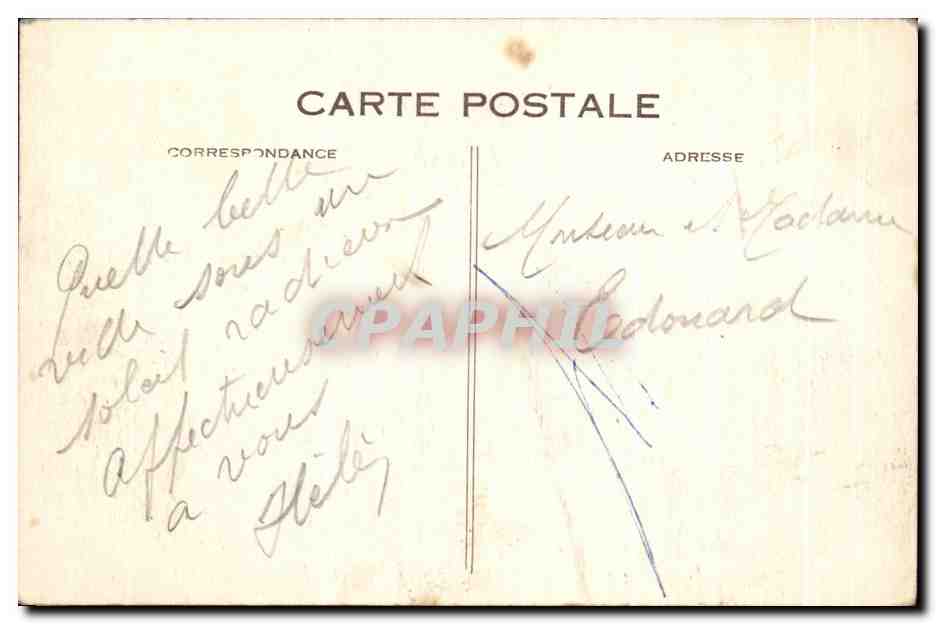 CARTE POSTALE
CORRESPONDANCE
Quelle belle
ville sous un
soleil radieux
Affectueusement
a vous
ADRESSE
Monsieur et Madame
Edouard
CPAPHIL